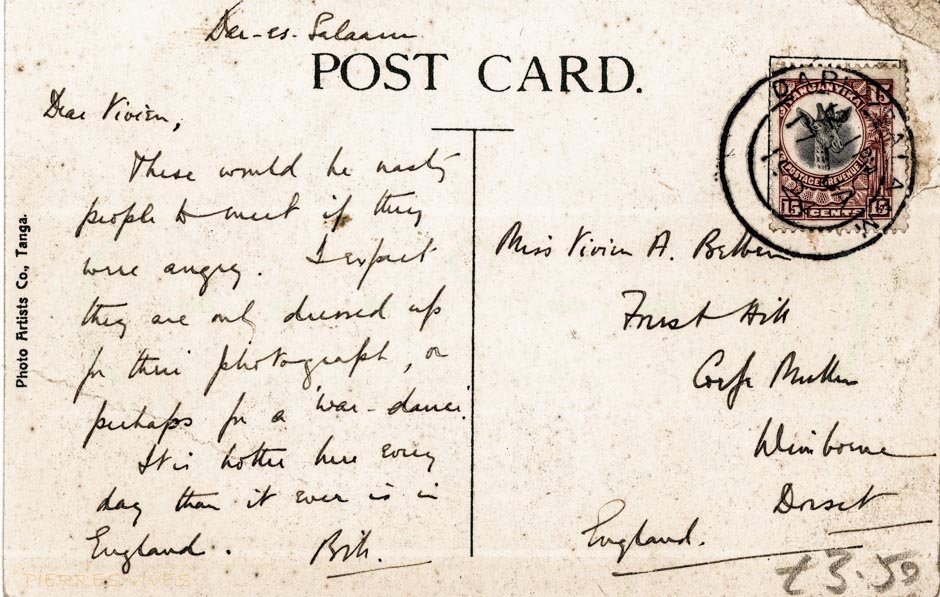 Dar-es-Salaam
POST CARD.
Dear Vivien,
These would be nasty
people to meet if they
were angry. I expect
they are only dressed up
for their photograph, or
perhaps for a 'war-dance'.
It is hotter here every
day than it ever is in
England. Bill.
Photo Artists Co., Tanga.
TANGANYIKA
POSTAGE & REVENUE
15 CENTS 15
DAR SALAAM
Miss Vivien A. Belben
Forest Hill
Corfe Mullen
Wimborne
Dorset
England.
£3.50
PIERRES VIVES